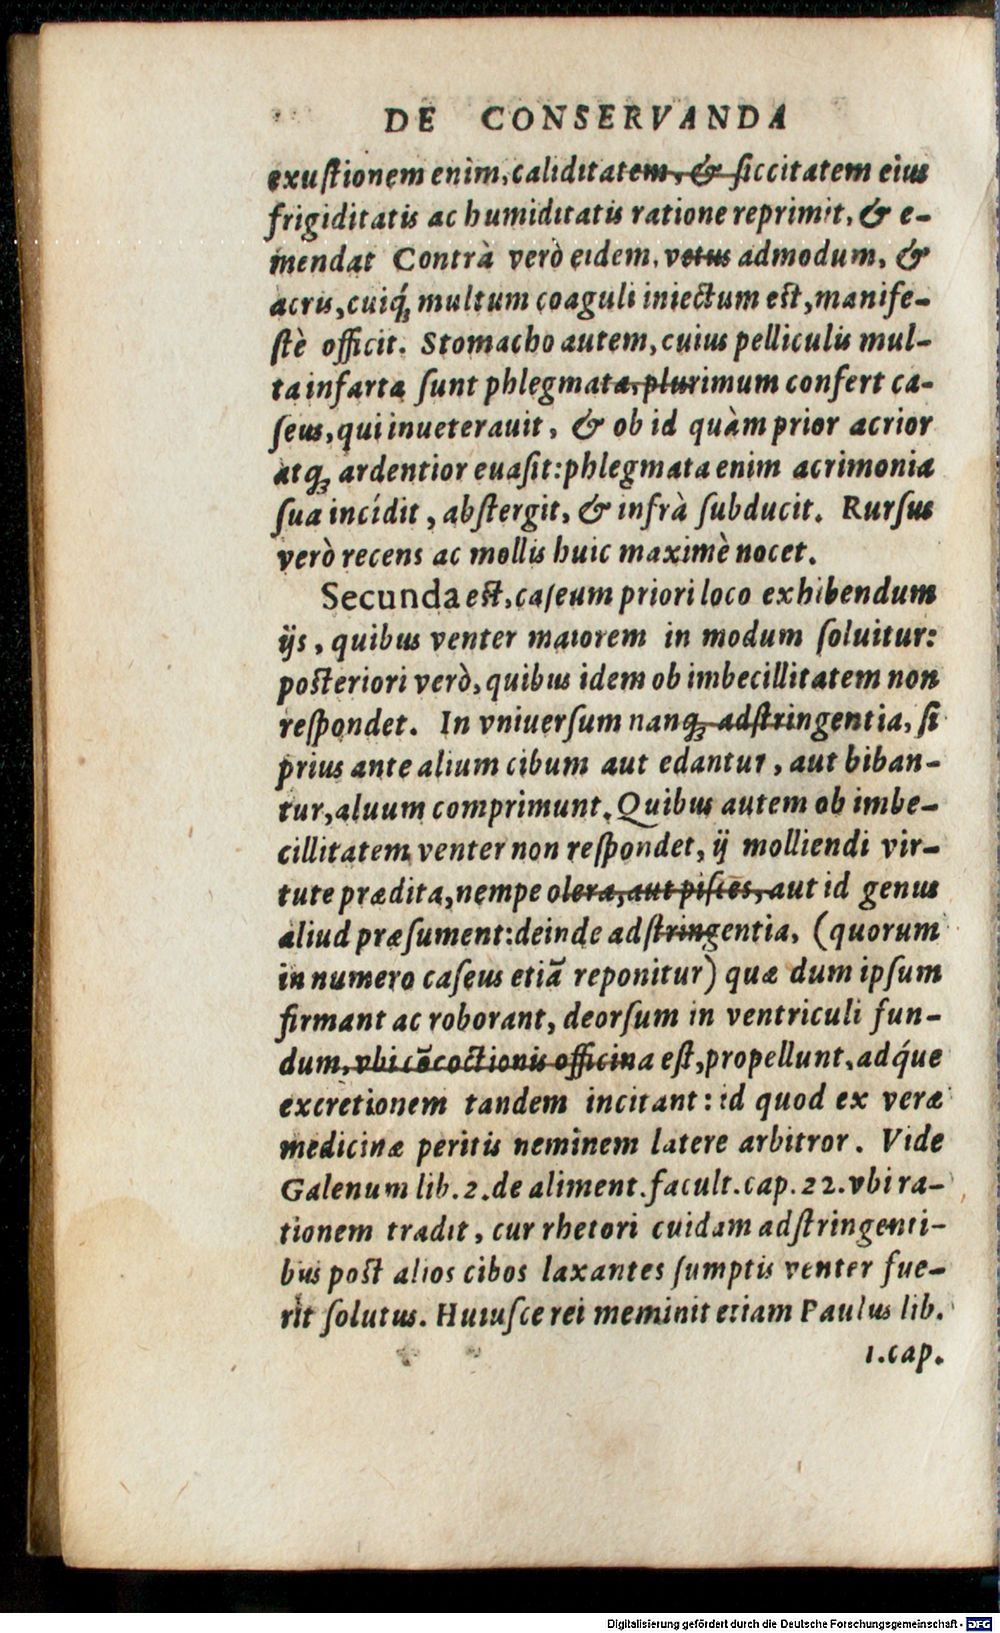 DE CONSERVANDA
exuſtionem enim, caliditatem, & ſiccitatem eius
frigiditatis ac humiditatis ratione reprimit, & e-
mendat Contrà verò eidem, vetus admodum, &
acris, cuiq́ꝫ multum coaguli iniectum eſt, manife-
ſtè officit. Stomacho autem, cuius pelliculis mul-
ta infarta ſunt phlegmata, plurimum confert ca-
ſeus, qui inueterauit, & ob id quàm prior acrior
atqꝫ ardentior euaſit: phlegmata enim acrimonia
ſua incídit, abſtergit, & infrà ſubducit. Rurſus
verò recens ac mollis huic maximè nocet.
Secunda eſt, caſeum priori loco exhibendum
ijs, quibus venter maiorem in modum ſoluitur:
poſteriori verò, quibus idem ob imbecillitatem non
reſpondet. In vniuerſum nanqꝫ adſtringentia, ſi
prius ante alium cibum aut edantur, aut biban-
tur, aluum comprimunt. Quibus autem ob imbe-
cillitatem venter non reſpondet, ij molliendi vir-
tute prædita, nempe olera, aut piſces, aut id genus
aliud præſument: deinde adſtringentia, (quorum
in numero caſeus etiā reponitur) quæ dum ipſum
firmant ac roborant, deorſum in ventriculi fun-
dum, vbi cōcoctionis officina eſt, propellunt, adq́ue
excretionem tandem incitant: id quod ex veræ
medicinæ peritis neminem latere arbitror. Vide
Galenum lib. 2. de aliment. facult. cap. 22. vbi ra-
tionem tradit, cur rhetori cuidam adſtringenti-
bus poſt alios cibos laxantes ſumptis venter fue-
rit ſolutus. Huiuſce rei meminit etiam Paulus lib.
1. cap.
Digitalisierung gefördert durch die Deutsche Forschungsgemeinschaft - DFG